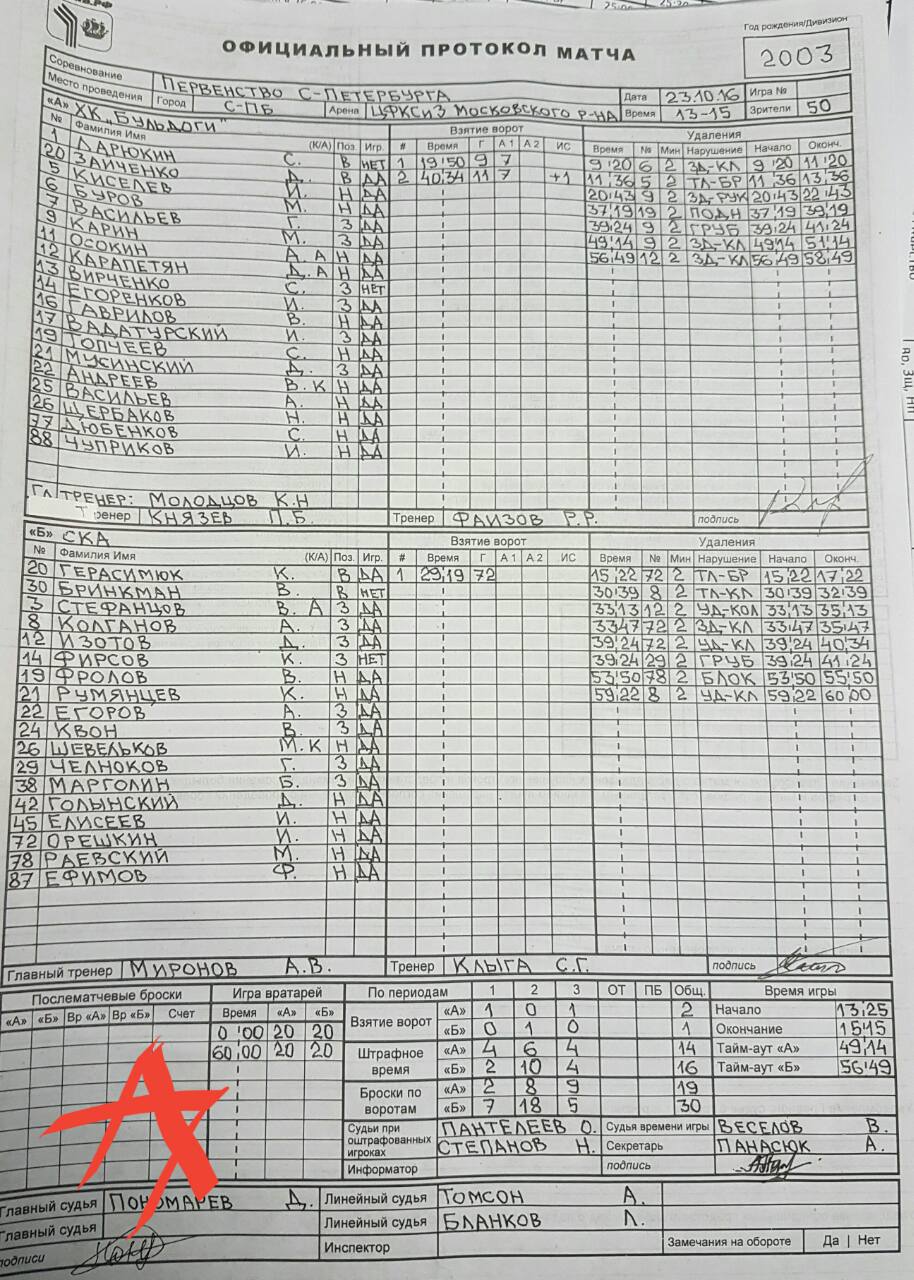 ОФИЦИАЛЬНЫЙ ПРОТОКОЛ МАТЧА
Год рождения/Дивизион
2003
Соревнование ПЕРВЕНСТВО С-ПЕТЕРБУРГА Дата 23.10.16 Игра №
Место проведения Город С-ПБ Арена ЦФКСиЗ МОСКОВСКОГО Р-НА Время 13-15 Зрители 50
«А» ХК „БУЛЬДОГИ" Взятие ворот Удаления
№ Фамилия Имя (К/А) Поз. Игр. # Время Г А 1 А 2 ИС Время № Мин Нарушение Начало Оконч.
1 ДАРЮКИН С. В НЕТ 1 19 50 9 7 9 20 6 2 ЗД-КЛ 9 20 11 20
20 ЗАИЧЕНКО Д. В ДА 2 40 34 11 7 +1 11 36 5 2 ТЛ-БР 11 36 13 36
5 КИСЕЛЕВ И. Н ДА 20 43 9 2 ЗД-РУК 20 43 22 43
6 БУРОВ М. Н ДА 37 19 19 2 ПОДН 37 19 39 19
7 ВАСИЛЬЕВ Г. З ДА 39 24 9 2 ГРУБ 39 24 41 24
9 КАРИН М. З ДА 49 14 9 2 ЗД-КЛ 49 14 51 14
11 ОСОКИН А. А Н ДА 56 49 12 2 ЗД-КЛ 56 49 58 49
12 КАРАПЕТЯН Д. А Н ДА
13 ВИРЧЕНКО С. З НЕТ
14 ЕГОРЕНКОВ И. З ДА
16 ГАВРИЛОВ В. Н ДА
17 ВАДАТУРСКИЙ И. З ДА
19 ТОПЧЕЕВ С. Н ДА
21 МУСИНСКИЙ Д. З ДА
22 АНДРЕЕВ В. К Н ДА
25 ВАСИЛЬЕВ А. Н ДА
26 ЩЕРБАКОВ Н. Н ДА
77 ДЮБЕНКОВ С. Н ДА
88 ЧУПРИКОВ И. Н ДА
ГЛ ТРЕНЕР: МОЛОДЦОВ К.Н
Тренер КНЯЗЕВ П.Б. Тренер ФАИЗОВ Р.Р. подпись
«Б» СКА Взятие ворот Удаления
№ Фамилия Имя (К/А) Поз. Игр. # Время Г А 1 А 2 ИС Время № Мин Нарушение Начало Оконч.
20 ГЕРАСИМЮК К. В ДА 1 29 19 72 15 22 72 2 ТЛ-БР 15 22 17 22
30 БРИНКМАН В. В НЕТ 30 39 8 2 ТЛ-КЛ 30 39 32 39
3 СТЕФАНЦОВ В. А З ДА 33 13 12 2 УД-КОЛ 33 13 35 13
8 КОЛГАНОВ А. З ДА 33 47 72 2 ЗД-КЛ 33 47 35 47
12 ИЗОТОВ Д. З ДА 39 24 72 2 УД-КЛ 39 24 40 34
14 ФИРСОВ К. З НЕТ 39 24 29 2 ГРУБ 39 24 41 24
19 ФРОЛОВ В. Н ДА 53 50 78 2 БЛОК 53 50 55 50
21 РУМЯНЦЕВ К. Н ДА 59 22 8 2 УД-КЛ 59 22 60 00
22 ЕГОРОВ А. З ДА
24 КВОН В. З ДА
26 ШЕВЕЛЬКОВ М. К Н ДА
29 ЧЕЛНОКОВ Г. З ДА
38 МАРГОЛИН Б. З ДА
42 ГОЛЫНСКИЙ Д. Н ДА
45 ЕЛИСЕЕВ И. Н ДА
72 ОРЕШКИН И. Н ДА
78 РАЕВСКИЙ М. Н ДА
87 ЕФИМОВ Ф. Н ДА
Главный тренер МИРОНОВ А.В. Тренер КЛЫГА С.Г. подпись
Послематчевые броски Игра вратарей По периодам 1 2 3 ОТ ПБ Общ. Время игры
«А» «Б» Вр «А» Вр «Б» Счет Время «А» «Б» Взятие ворот «А» 1 0 1 2 Начало 13 25
0 00 20 20 «Б» 0 1 0 1 Окончание 15 15
60 00 20 20 Штрафное время «А» 4 6 4 14 Тайм-аут «А» 49 14
«Б» 2 10 4 16 Тайм-аут «Б» 56 49
Броски по воротам «А» 2 8 9 19
«Б» 7 18 5 30
Судьи при оштрафованных игроках ПАНТЕЛЕЕВ О. Судья времени игры ВЕСЕЛОВ В.
СТЕПАНОВ Н. Секретарь ПАНАСЮК А.
Информатор подпись
Главный судья ПОНОМАРЕВ Д. Линейный судья ТОМСОН А.
Главный судья Линейный судья БЛАНКОВ Л.
подписи Инспектор Замечания на обороте Да | Нет